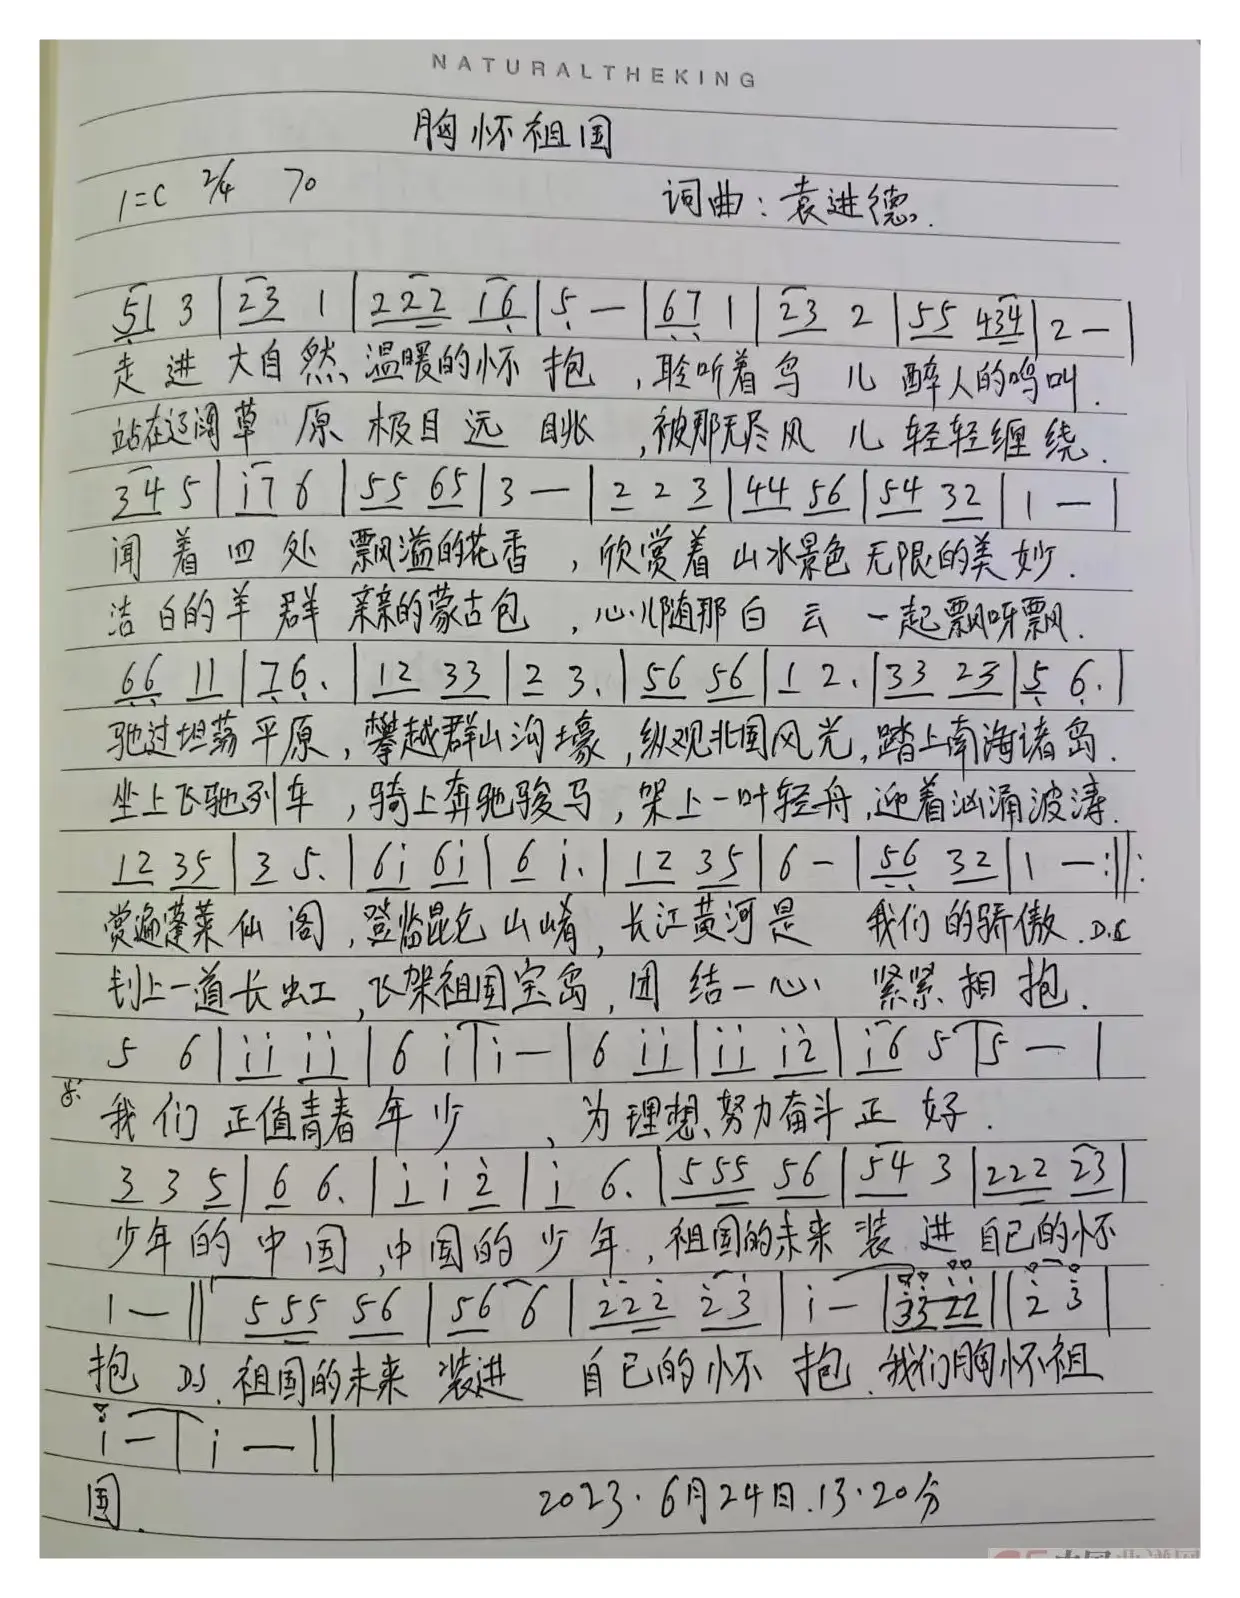 NATURALTHEKING
胸怀祖国
1=C 2/4 70 词曲：袁进德.
51 3 | 23 1 | 222 i6 | 5 — | 67 1 | 23 2 | 55 434 | 2 — |
走进大自然温暖的怀抱，聆听着鸟儿醉人的鸣叫.
站在辽阔草原极目远眺，被那无尽风儿轻轻缠绕.
34 5 | i7 6 | 55 65 | 3 — | 2 2 3 | 44 56 | 54 32 | 1 — |
闻着四处飘溢的花香，欣赏着山水景色无限的美妙.
洁白的羊群亲亲的蒙古包，心儿随那白云一起飘呀飘.
66 11 | 76. | 12 33 | 2 3. | 56 56 | 1 2. | 33 23 | 5 6. |
驰过坦荡平原，攀越群山沟壕，纵观北国风光，踏上南海诸岛.
坐上飞驰列车，骑上奔驰骏马，架上一叶轻舟，迎着汹涌波涛.
12 35 | 3 5. | 6i 6i | 6 i. | 12 35 | 6 — | 56 32 | 1 — :‖:
赏遍蓬莱仙阁，登临昆仑山峭，长江黄河是我们的骄傲. D.C
划上一道长虹，飞架祖国宝岛，团结一心紧紧相抱.
5 6 | ii ii | 6 i | i — | 6 ii | ii i2 | i6 5 | 5 — |
我们正值青春年少，为理想、努力奋斗正好.
3 3 5 | 6 6. | i i 2 | i 6. | 555 56 | 54 3 | 222 23 |
少年的中国，中国的少年，祖国的未来装进自己的怀
1 — ‖ 555 56 | 56 6 | 222 23 | i — | 33 22 ‖ 2 3 |
抱 D.S. 祖国的未来装进自己的怀抱.我们胸怀祖
i — | i — ‖
国.
2023.6月24日.13.20分